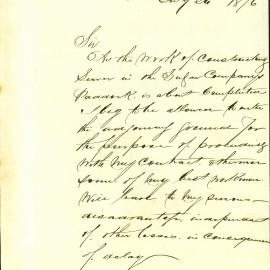 Aug 26 1876
Sir
As the work of constructing
Sewer in the Sugar Company's
Paddock is about Completion
I beg to be allowed to enter
the adjoining ground for
the purpose of proceeding
with my Contract, otherwise
some of my best workmen
will leave to my serious
disadvantage independent
of other losses in consequence
of delay